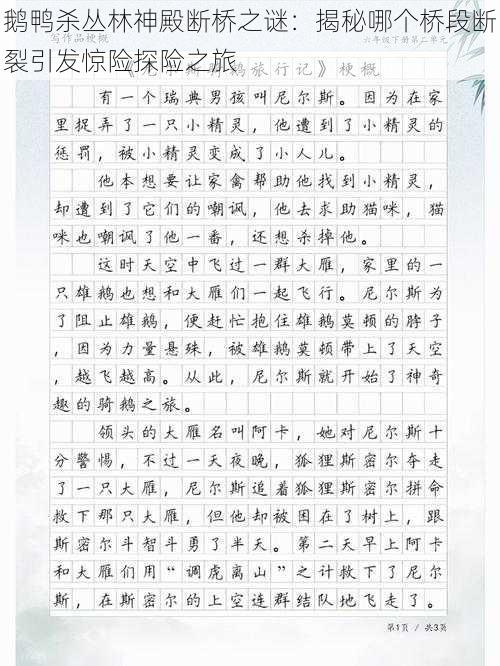 鹅鸭杀丛林神殿断桥之谜：揭秘哪个桥段断
裂引发惊险探险之旅
写作品梗概
六年级下册第二单元
旅行记》梗概
有一个瑞典男孩叫尼尔斯。因为在家
里捉弄了一只小精灵，他遭到了小精灵的
惩罚，被小精灵变成了小人儿。
他本想要让家禽帮助他找到小精灵，
却遭到了它们的嘲讽，他去求助猫咪，猫
咪也嘲讽了他一番，还想杀掉他。
这时天空中飞过一群大雁，家里的一
只雄鹅也想和大雁们一起飞行。尼尔斯为
了阻止雄鹅，便赶忙抱住雄鹅莫顿的脖子
，因为力量悬殊，被雄鹅莫顿带上了天空
，越飞越高。从此，尼尔斯就开始了神奇
趣的骑鹅之旅。
领头的大雁名叫阿卡，她对尼尔斯十
分警惕，不过一天夜晚，狐狸斯密尔夺走
了一只大雁，尼尔斯追着狐狸斯密尔拼命
救下那只大雁，但他却被困在了树上，跟
斯密尔斗智斗勇了半天。第二天早上阿卡
和大雁们用“调虎离山”之计救下了尼尔
斯，在斯密尔的上空连群结队地飞走了。
第1页 / 共3页